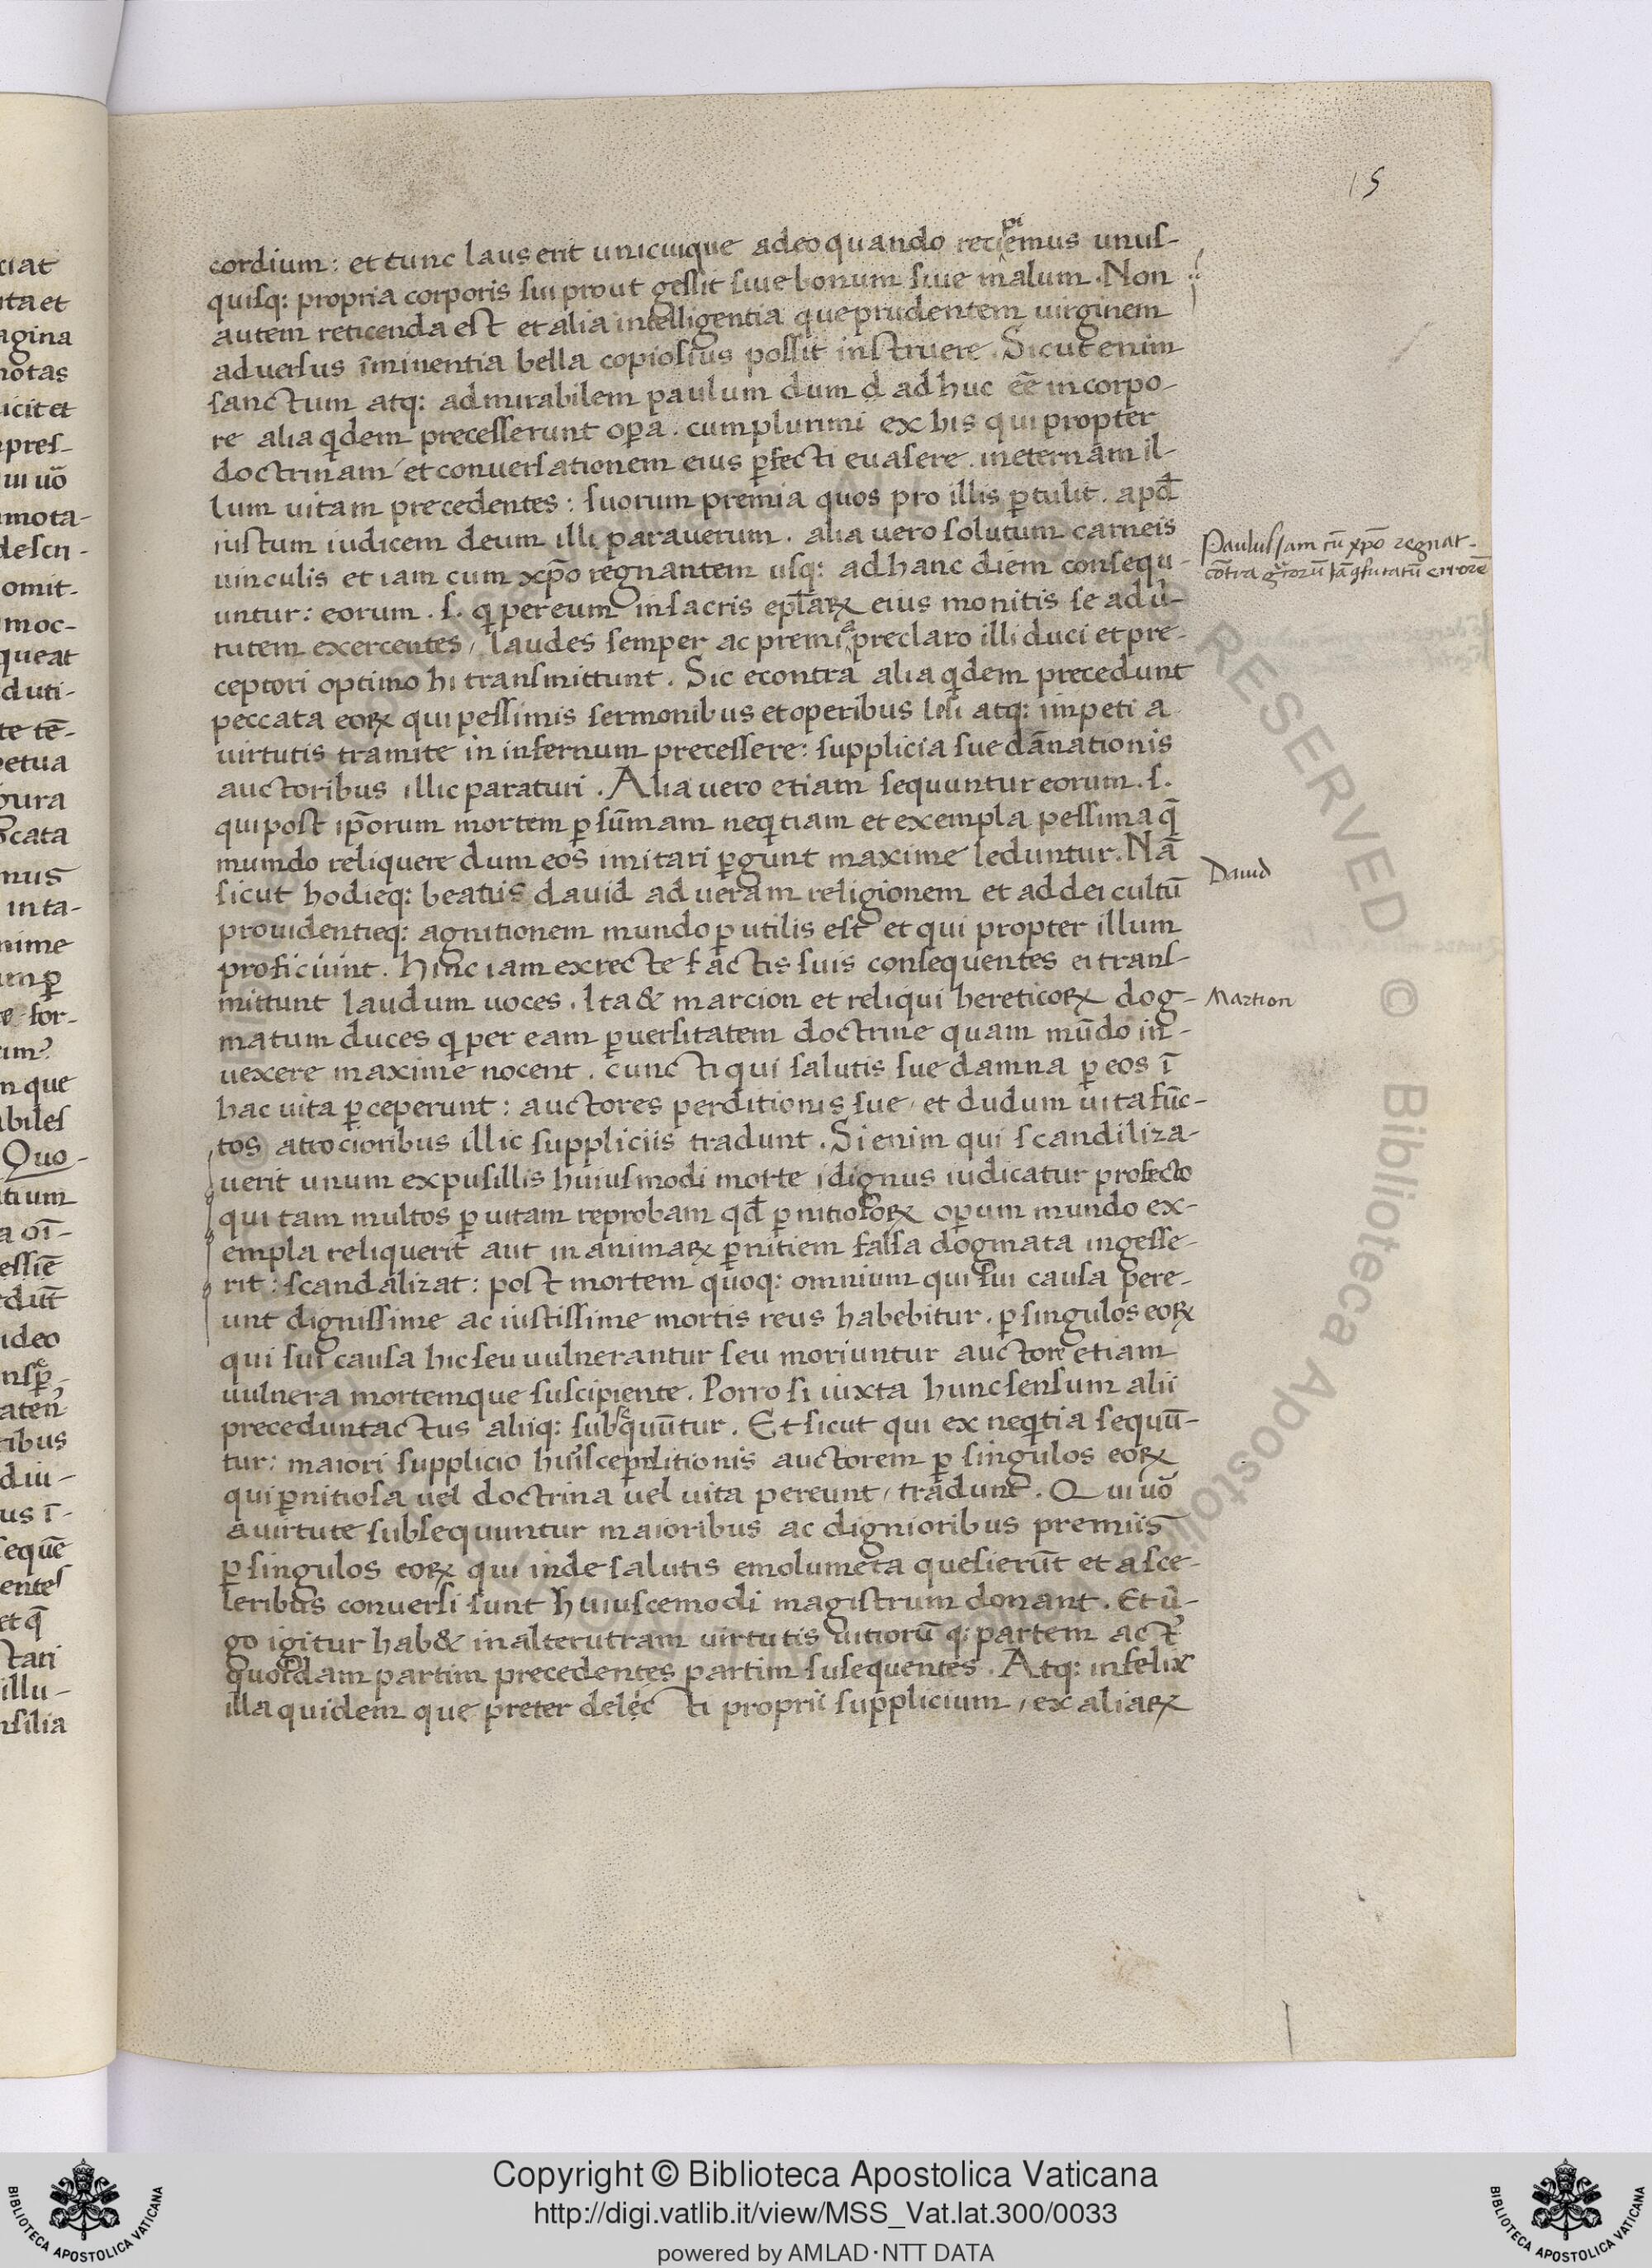 15
cordium: et tunc laus erit unicuique adeo quando reci\pi/emus unuſ-
quiſq: propria corporis ſui prout geſſit ſiue bonum ſiue malum. Non
autem reticenda eſt et alia intelligentia que prudentem uirginem
aduerſus īminentia bella copioſius poſſit inſtruere. Sicut enim
ſanctum atq: admirabilem paulum dum adhuc eē in corpo-
re alia qdem preceſſerunt oꝑa. cum plurimi ex his qui propter
doctrinam et conuerſationem eius ꝑfecti euaſere. in eternam il-
lum uitam precedentes: ſuorum premia quos pro illis ꝑtulit. apđ
iuſtum iudicem deum illi parauerum. alia uero ſolutum carneis
uinculis et iam cum xp̄o regnantem uſq: ad hanc diem conſequ-
untur: eorum. ſ. q per eum in ſacris epl̄aꝝ eius monitis ſe ad uͥ-
tutem exercentes, laudes ſemper ac premi\a/ preclaro illi duci et pre-
ceptori optimo hi tranſmittunt. Sic econtra alia qdem precedunt
peccata eoꝝ qui peſſimis ſermonibus et operibus leſi atq: impeti a
uirtutis tramite in infernum preceſſere: ſupplicia ſue dānationis
auctoribus illic paraturi. Alia uero etiam ſequuntur eorum. ſ.
qui poſt ip̄orum mortem ꝑ ſūmam neqtiam et exempla peſſima q̄
mundo reliquere dum eos imitari ꝑgunt maxime leduntur. Nā
ſicut hodieq: beatus dauid ad ueram religionem et ad dei cultū
prouidentieq: agnitionem mundo ꝑutilis eſt et qui propter illum
proficiunt. hinc iam ex recte factis ſuis conſequentes ei tranſ-
mittunt laudum uoces. Ita & marcion et reliqui hereticoꝝ dog-
matum duces q per eam ꝑuerſitatem doctrine quam mūdo in-
uexere maxime nocent. cuncti qui ſalutis ſue damna ꝑ eos ī
hac uita ꝑceperunt: auctores perditionis ſue, et dudum uita fūc-
tos atrocioribus illic ſuppliciis tradunt. Si enim qui ſcandiliza-
uerit unum ex puſillis huiuſmodi morte idignus iudicatur profecto
qui tam multos ꝑ uitam reprobam qđ ꝑnitioſoꝝ oꝑum mundo ex-
empla reliquerit aut in animaꝝ ꝑnitiem falſa dogmata ingeſſe-
rit: ſcandalizat: poſt mortem quoq: omnium qui ſui cauſa pere-
unt digniſſime ac iuſtiſſime mortis reus habebitur. ꝑ ſingulos eoꝝ
qui ſui cauſa hic ſeu uulnerantur ſeu moriuntur auctore etiam
uulnera mortemque ſuſcipiente. Porro ſi iuxta hunc ſenſum alii
precedunt actus aliiq: ſubſequūtur. Et ſicut qui ex neqtia ſequū-
tur: maiori ſupplicio huiꝰſce ꝑditionis auctorem ꝑ ſingulos eoꝝ
qui ꝑnitioſa uel doctrina uel uita pereunt, tradunt. Qui uō
a uirtute ſubſequuntur maioribus ac dignioribus premiis
ꝑ ſingulos eoꝝ qui inde ſalutis emolumēta queſierūt et a ſce-
leribus conuerſi ſunt huiuſcemodi magiſtrum donant. Et uͥ-
go igitur hab& in alterutram uirtutis uitiorū q: partem actꝰ
quoſdam partim precedentes partim ſuſequentes. Atq: infelix
illa quidem que preter delecti proprii ſupplicium, ex aliaꝝ
Pauluſ Iam cū xp̄o regnat.
Dauid
Martion
ciat
uta et
agina
notas
icit et
preſ-
ui uō
mota-
deſcri-
omit-
moc-
queat
duti-
te tē-
petua
gura
cata
mus
inta-
nime
for-
n que
abileſ
Quo-
tium
eſſiē
dūt
ideo
aten
tibus
diu-
us ī-
ſequē
enteſ
et q̄
tari
illu-
nſilia
RESERVED © Biblioteca Apostolica
Copyright © Biblioteca Apostolica Vaticana
http://digi.vatlib.it/view/MSS_Vat.lat.300/0033
powered by AMLAD·NTT DATA
BIBLIOTECA APOSTOLICA VATICANA
BIBLIOTECA APOSTOLICA VATICANA